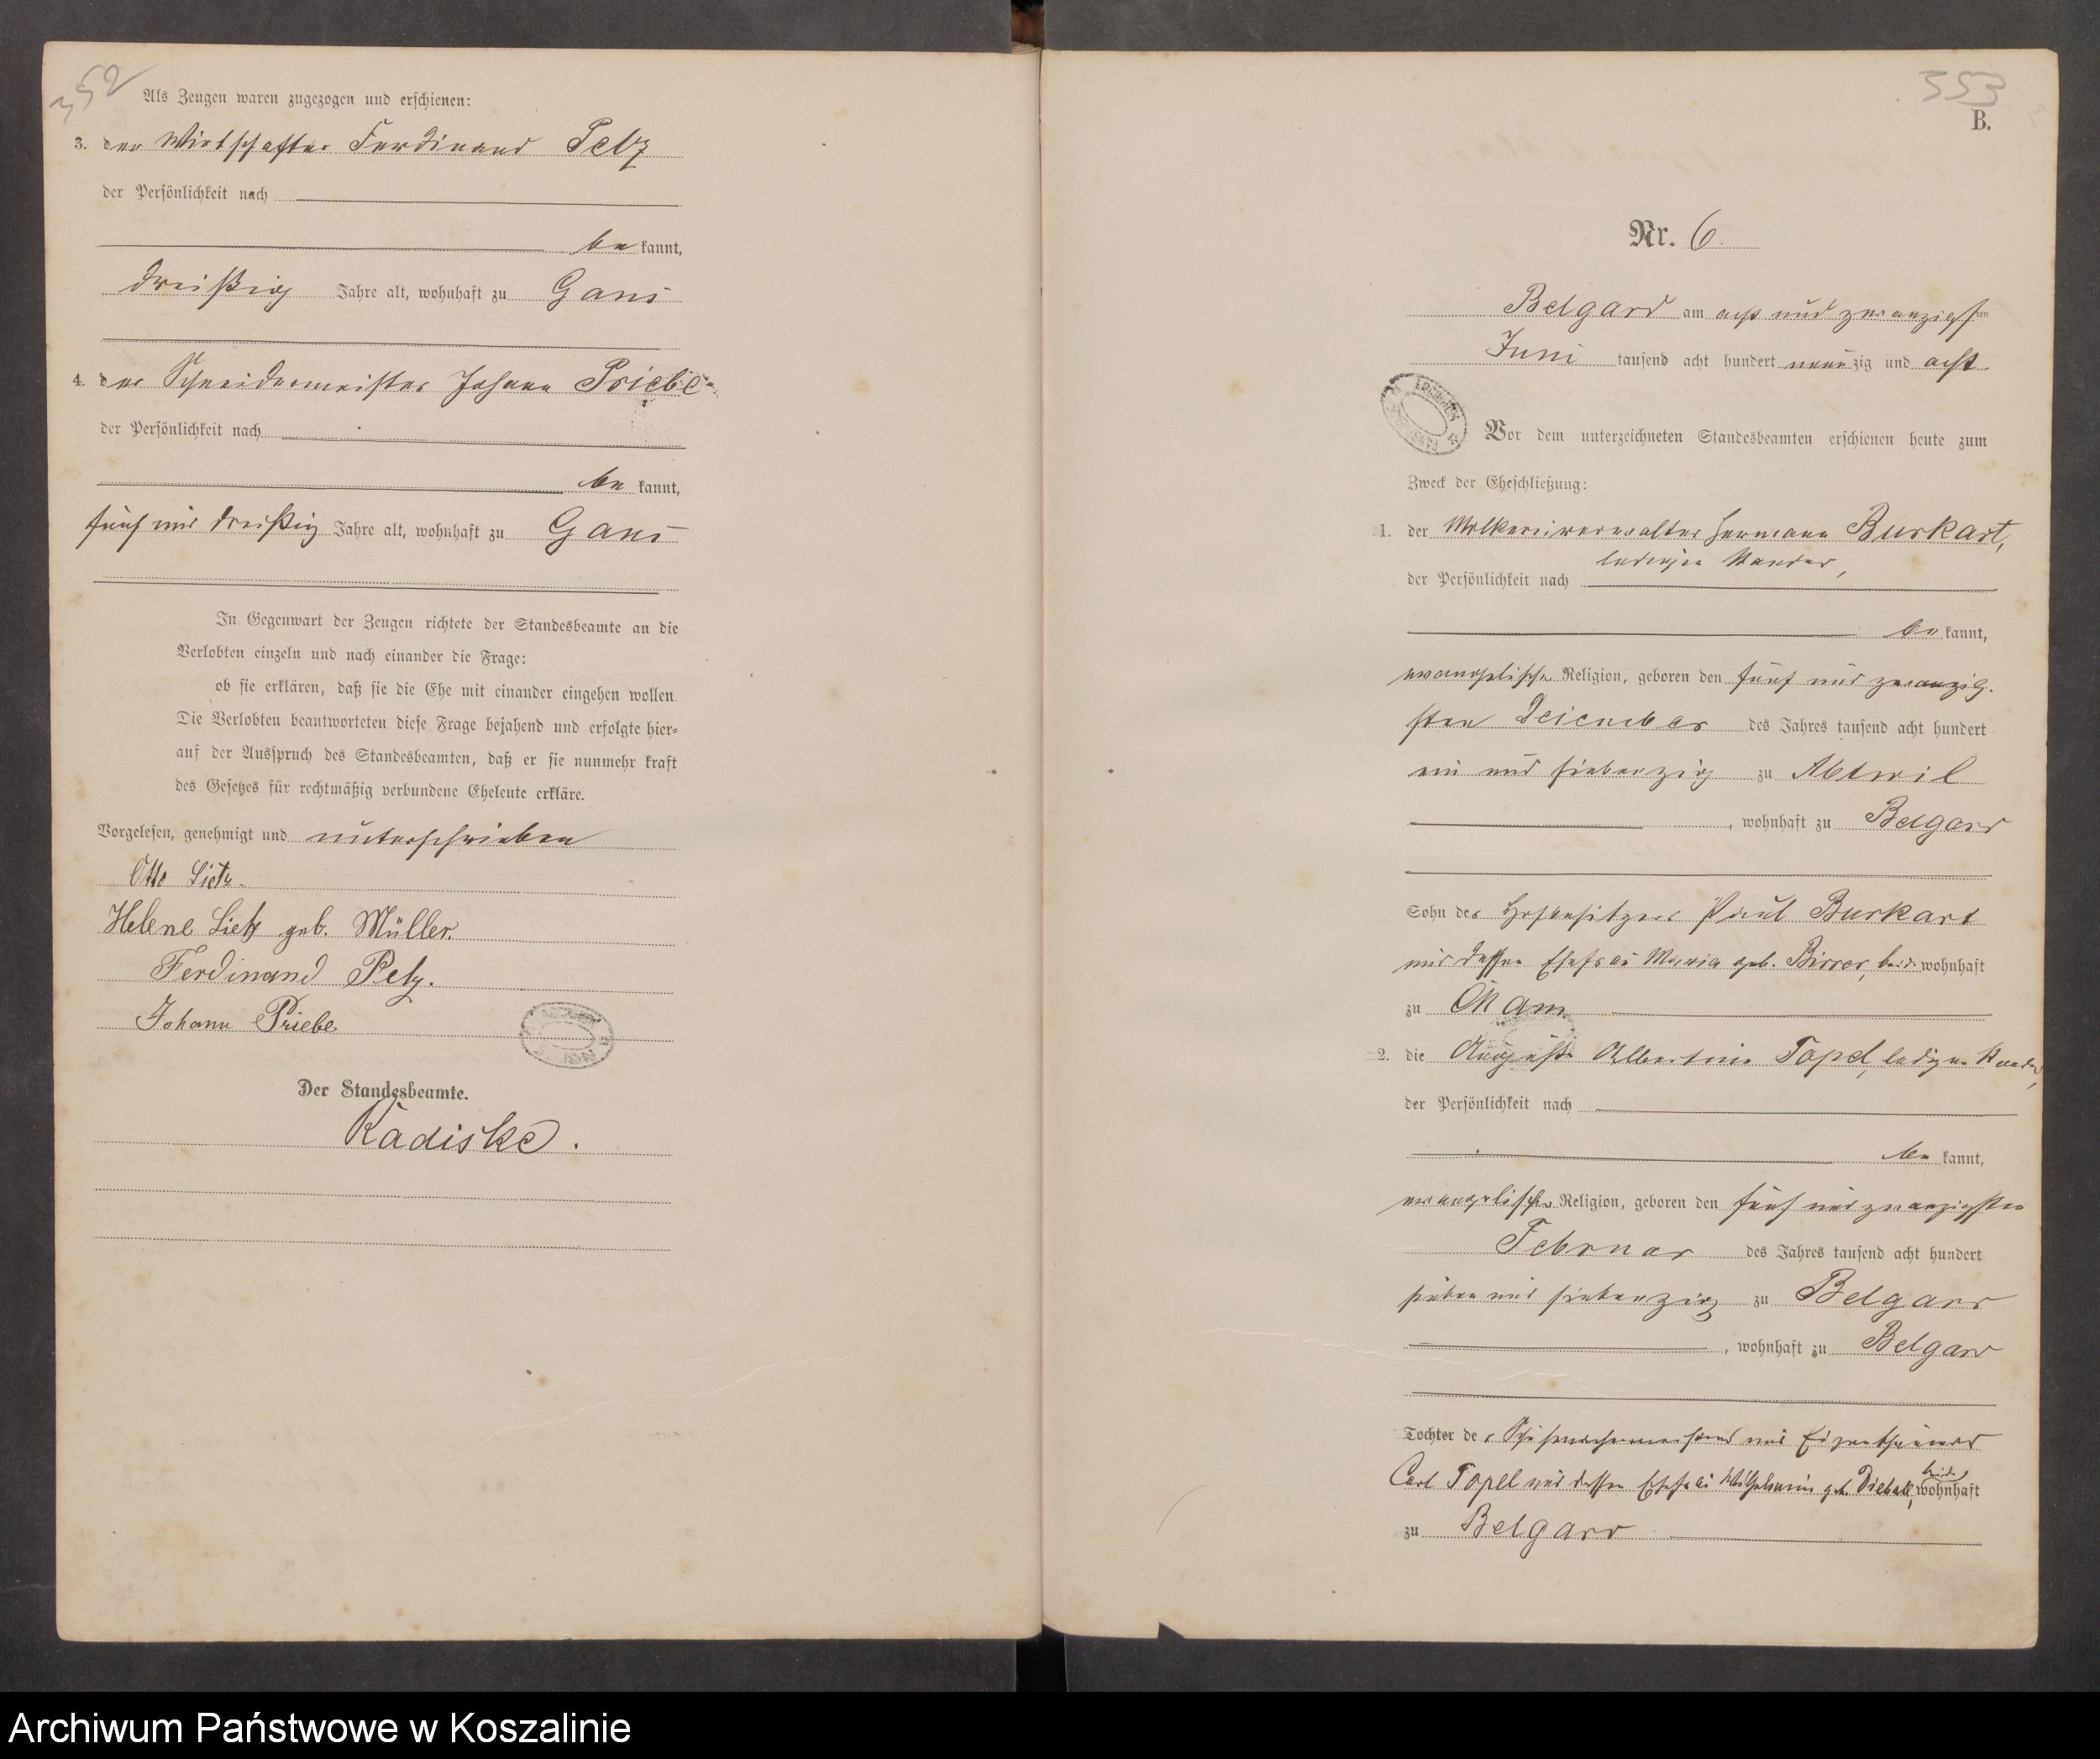 352
Als Zeugen waren zugezogen und erschienen:
3. der Wirthschafter Ferdinand Pelz
der Persönlichkeit nach
be kannt,
dreißig Jahre alt, wohnhaft zu Gans
4. der Schneidermeister Johann Priebe
der Persönlichkeit nach
be kannt,
fünf und dreißig Jahre alt, wohnhaft zu Gans
In Gegenwart der Zeugen richtete der Standesbeamte an die
Verlobten einzeln und nach einander die Frage:
ob sie erklären, daß sie die Ehe mit einander eingehen wollen.
Die Verlobten beantworteten diese Frage bejahend und erfolgte hier=
auf der Ausspruch des Standesbeamten, daß er sie nunmehr kraft
des Gesetzes für rechtmäßig verbundene Eheleute erkläre.
Vorgelesen, genehmigt und unterschrieben
Otto Lietz
Helene Lietz geb. Müller.
Ferdinand Pelz.
Johann Priebe
Der Standesbeamte.
Radiske.
553
B.
Nr. 6.
Belgard am acht und zwanzigsten
Juni tausend acht hundert neunzig und acht
Vor dem unterzeichneten Standesbeamten erschienen heute zum
Zweck der Eheschließung:
1. der Molkereiverwalter Hermann Burkart,
ledigen Standes,
der Persönlichkeit nach
be kannt,
evangelischer Religion, geboren den fünf und zwanzig=
sten Dezember des Jahres tausend acht hundert
ein und siebenzig zu Abtwil
, wohnhaft zu Belgard
Sohn des Hofbesitzers Paul Burkart
und dessen Ehefrau Maria geb. Birrer, beide wohnhaft
zu
2. die Auguste Albertine Topel, ledigen Standes,
der Persönlichkeit nach
be kannt,
evangelischer Religion, geboren den fünf und zwanzigsten
Februar des Jahres tausend acht hundert
sieben und siebenzig zu Belgard
, wohnhaft zu Belgard
Tochter des Schuhmachermeisters und Eigenthümers
Carl Topel und dessen Ehefrau Wilhelmine geb. beide wohnhaft
zu Belgard
Archiwum Państwowe w Koszalinie